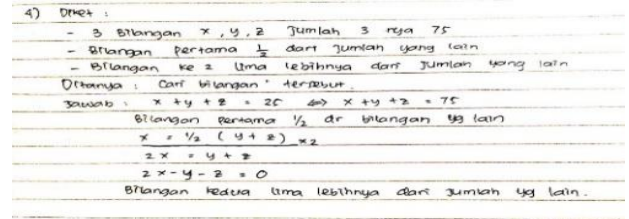 4) Diket :
- 3 Bilangan x, y, z Jumlah 3 nya 75
- Bilangan pertama 1/2 dari Jumlah yang lain
- Bilangan ke 2 lima lebihnya dari Jumlah yang lain
Ditanya : Cari bilangan" tersebut.
Jawab : x + y + z = 25 <=> x + y + z = 75
Bilangan pertama 1/2 dr bilangan yg lain
x = 1/2 ( y + z ) x2
2x = y + z
2x - y - z = 0
Bilangan kedua lima lebihnya dari Jumlah yg lain.